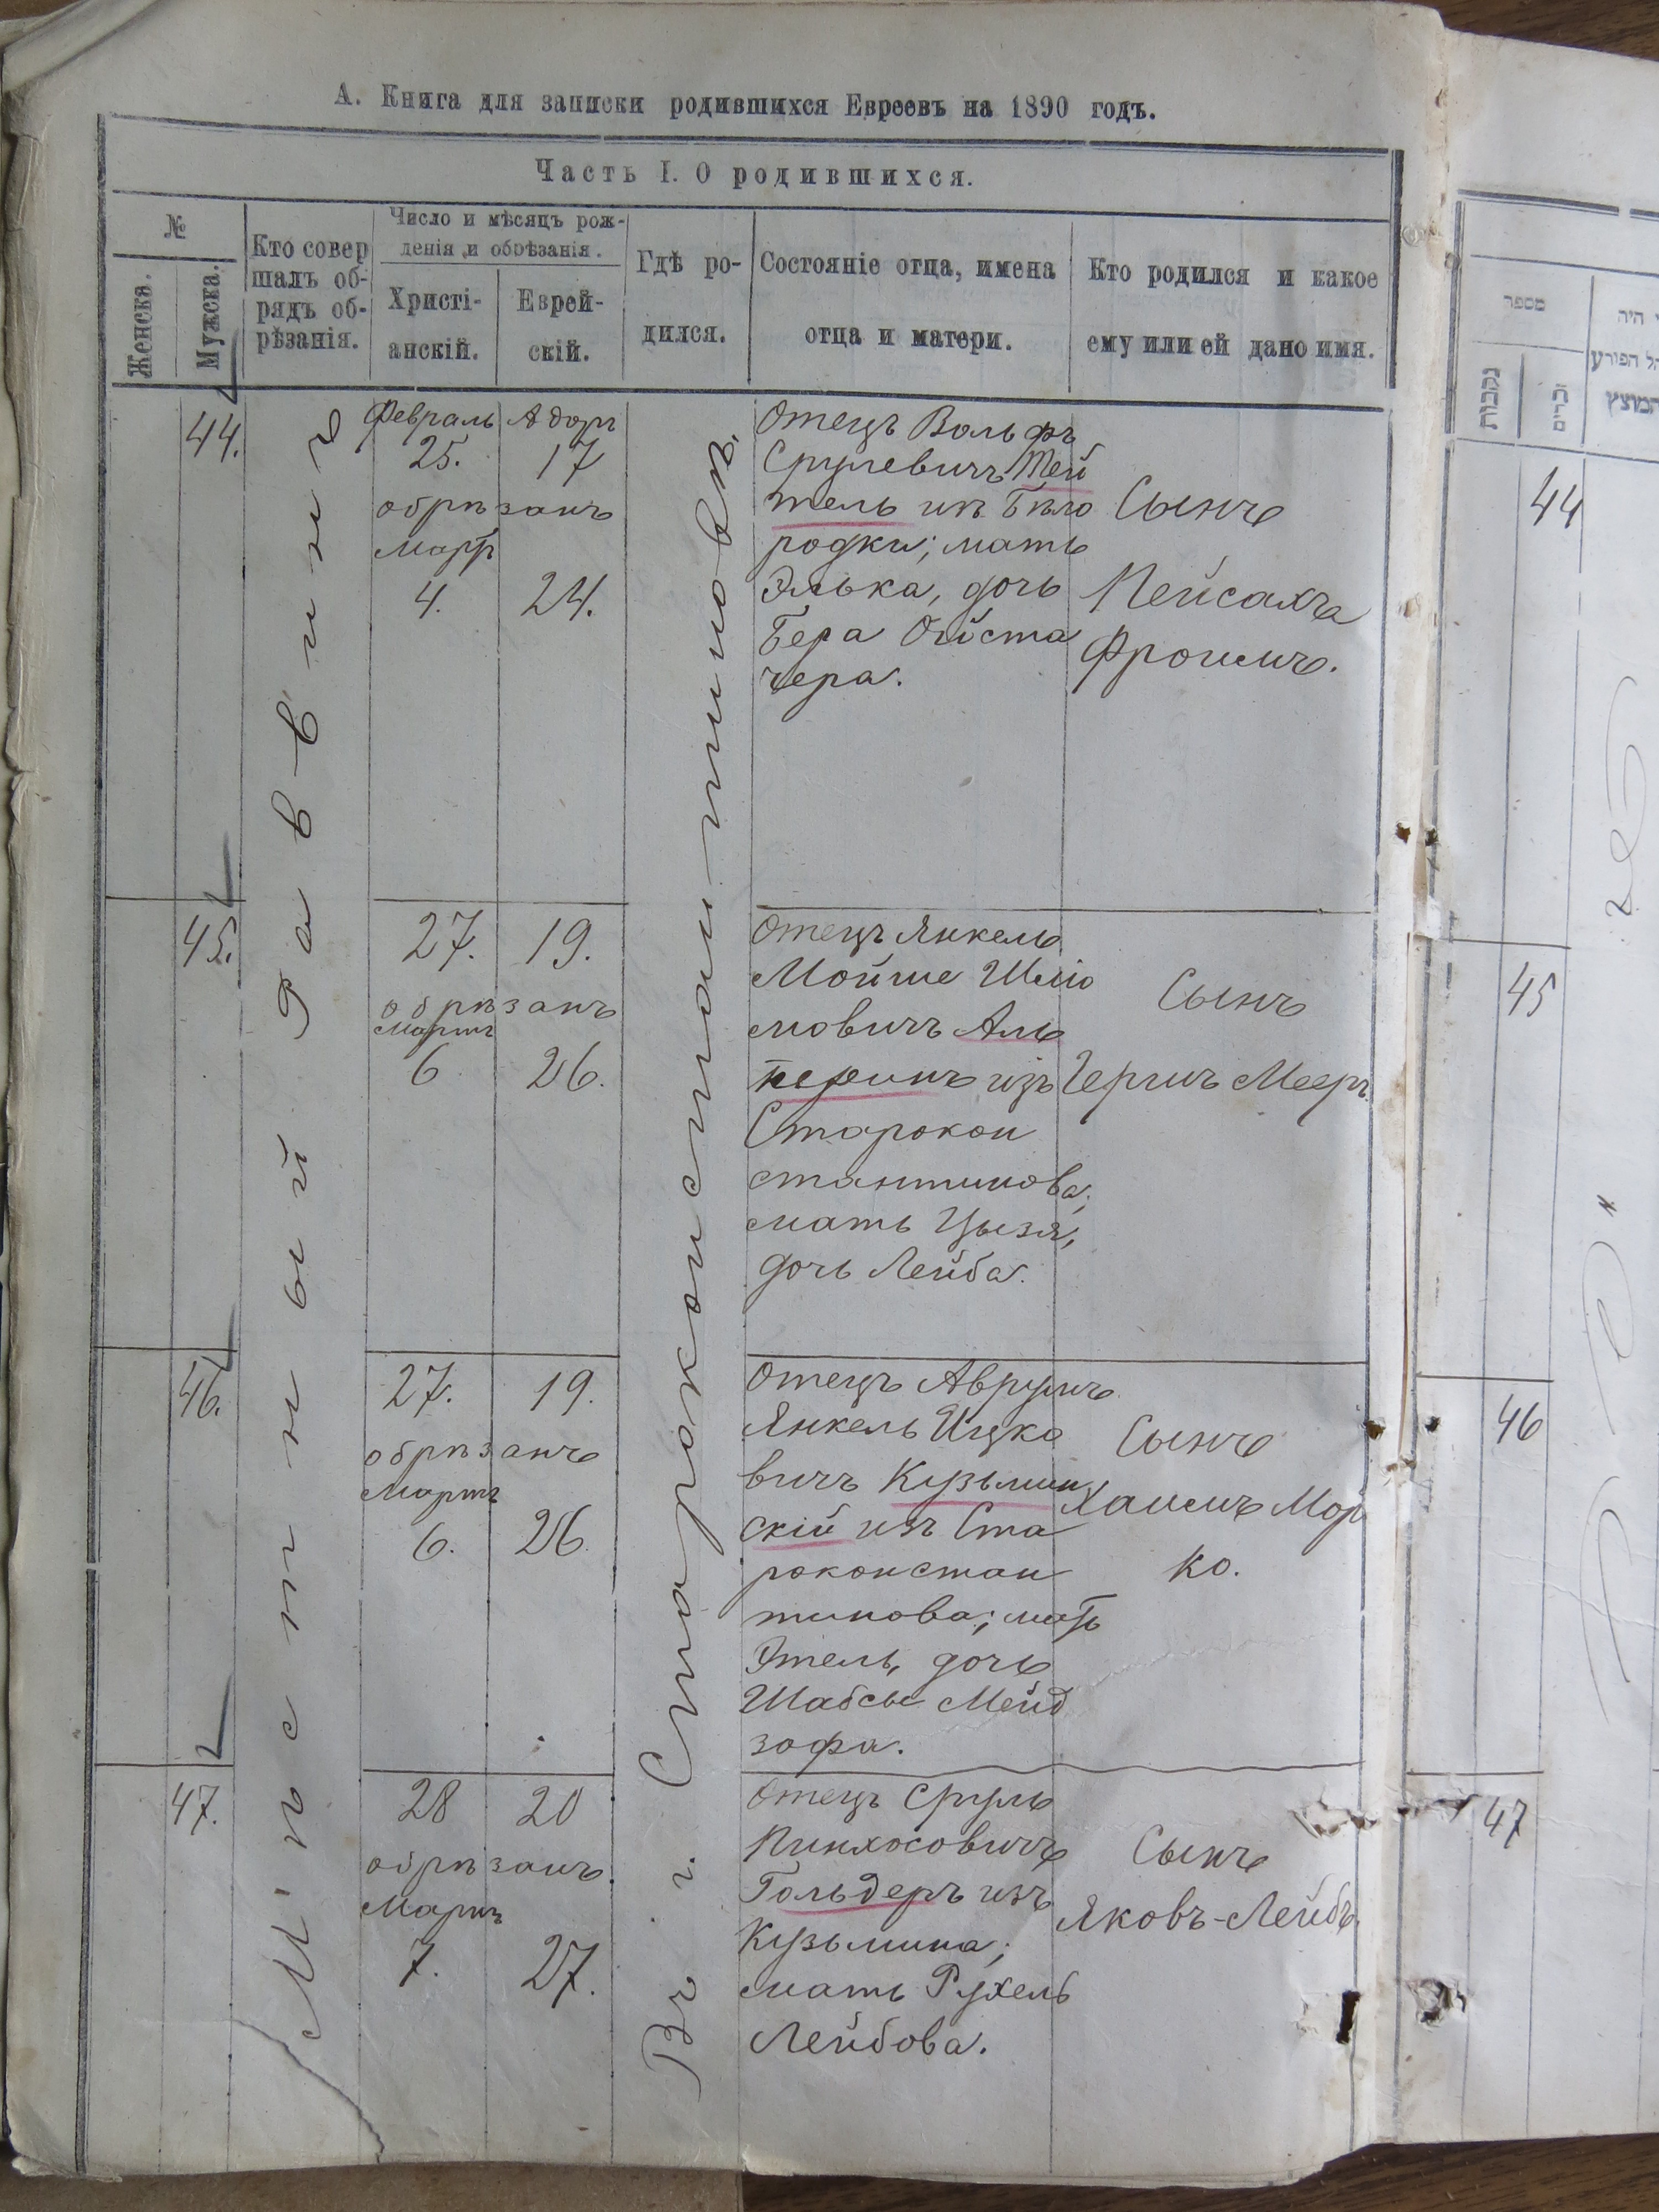 А. Книга для записки родившихся Евреевъ на 1890 годъ.
Часть I. О родившихся.
№
Женска.
Мужска.
Кто совер
шалъ об-
рядъ об-
рѣзанія.
Число и мѣсяцъ рож-
денія и обрѣзанія.
Христі-
анскій.
Еврей-
скій.
Гдѣ ро-
дился.
Состояніе отца, имена
отца и матери.
Кто родился и какое
ему или ей дано имя.
Мѣстный Раввинъ
Въ г. Староконстантиновѣ.
44.
Февраль Адоръ
25. 17
обрѣзанъ
Мартъ
4. 24.
Отецъ Вольфъ
Срулевичъ Тей
тель изъ Бѣло
родки; мать
Элька, дочь
Бера Ойста
чера.
Сынъ
Пейсахъ
Фроимъ.
45.
27. 19.
обрѣзанъ
Мартъ
6 26.
Отецъ Янкель
Мойше Шлио
мовичъ Аль
перинъ изъ
Старокон
стантинова;
мать Цызя,
дочь Лейба.
Сынъ
Гершъ Мееръ.
46.
27. 19.
обрѣзанъ
Мартъ
6. 26
Отецъ Аврумъ
Янкель Ицко
вичъ Кузьмин
скій изъ Ста
роконстан
тинова; мать
Этель, дочь
Шабсы Мейд
зофа.
Сынъ
Хаимъ Мор
ко.
47.
28 20
обрѣзанъ.
Мартъ
7. 27.
Отецъ Сруль
Пинхосовичъ
Гольдеръ изъ
Кузьмина;
мать Рухель
Лейбова.
Сынъ
Яковъ-Лейбъ.
מספר
נקבות
זכרים
היה
הפורע
המוצץ
44
45
46
47